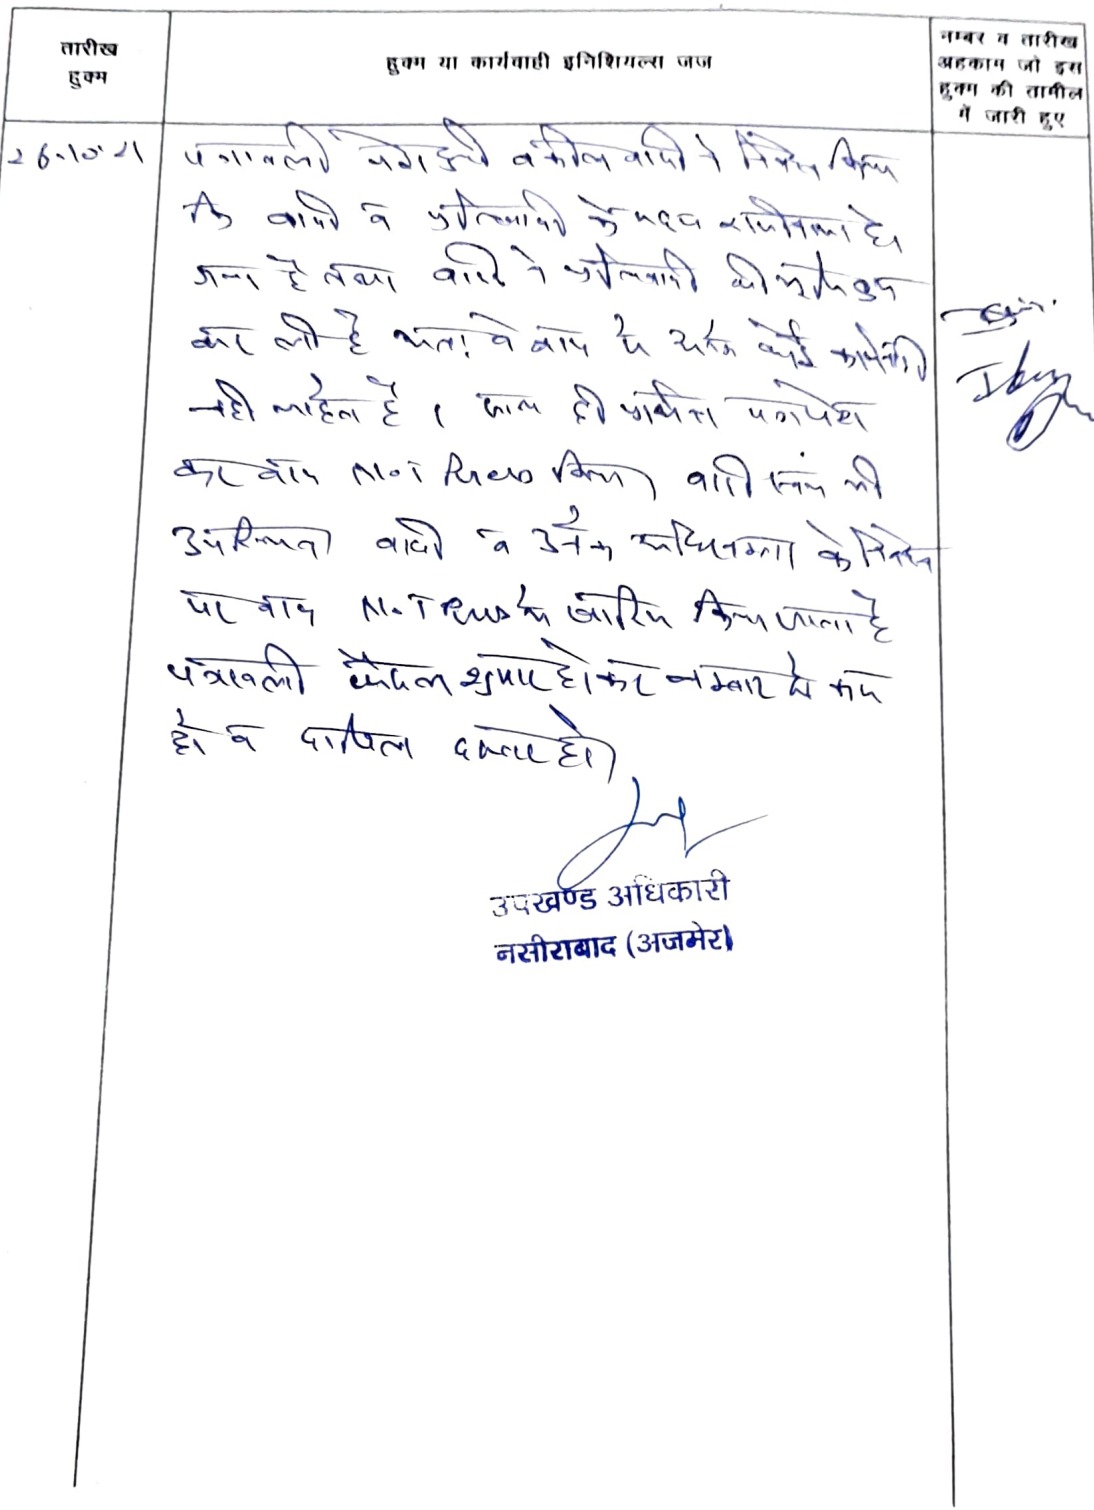 तारीख
हुक्म
हुक्म या कार्यवाही इनिशियल्स जज
नम्बर व तारीख
अहकाम जो इस
हुक्म की तामील
में जारी हुए
26.10.21
पत्रावली पेश हुयी वकील वादी ने निवेदन किया
कि वादी व प्रतिवादी के मध्य राजीनामा हो
गया है तथा वादी ने प्रतिवादी की भूमि क्रय
कर ली है अतः वे वाद में कोई कार्यवाही
नही चाहते है । साथ ही प्रार्थना पत्र पेश
कर वाद Not Press किया। वादी स्वंय की
उपस्थिति वादी व उनके अधिवक्ता के निवेदन
पर वाद Not Press में खारिज किया जाता है
पत्रावली फैसल शुमार होकर नम्बर से कम
हो व दाखिल दफ्तर हो।
उपखण्ड अधिकारी
नसीराबाद (अजमेर)